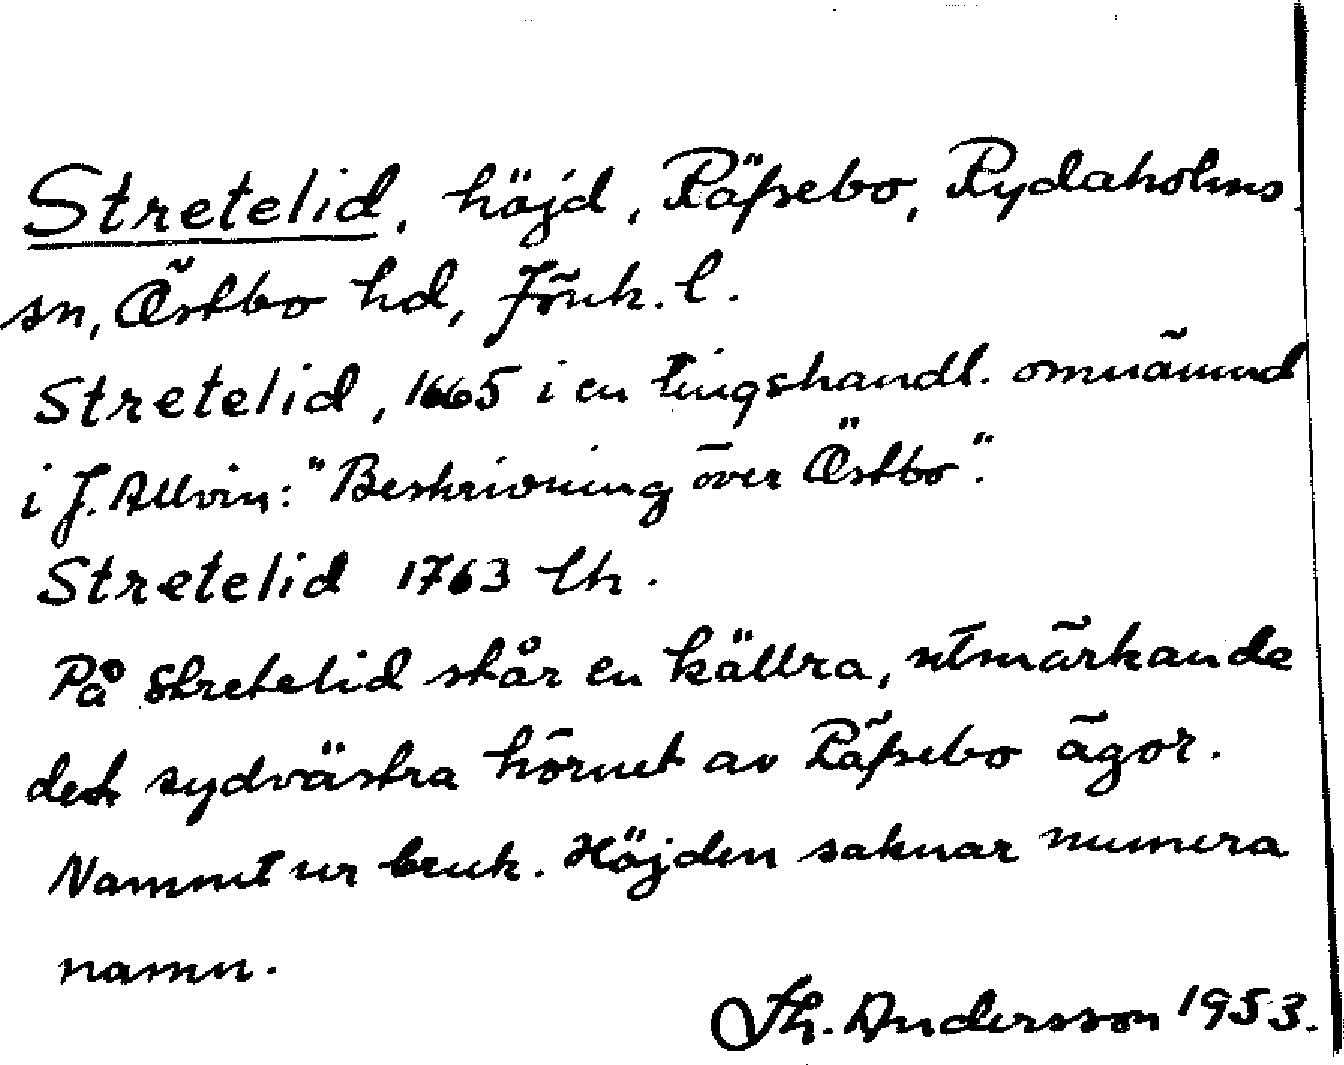 Stretelid, höjd, Räpsebo, Rydaholms
sn, Östbo hd, Jönk. l.
Stretelid, 1665 i en tingshandl. omnämnd
i J. Allvin: "Beskrivning över Östbo".
Stretelid 1763 lh.
På Stretelid står en källra, utmärkande
det sydvästra hörnet av Räpsebo ägor.
Namnet ur bruk. Höjden saknar numera
namn.
Th. Andersson 1953.